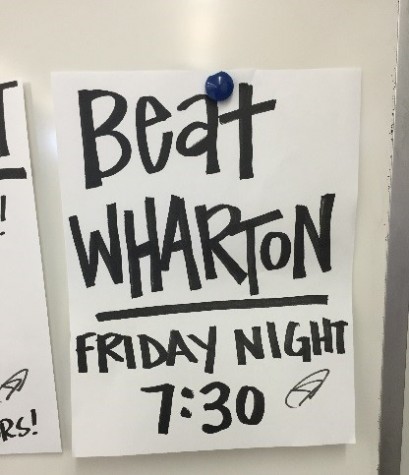 Beat
WHARTON
FRIDAY NIGHT
7:30
!
RS!